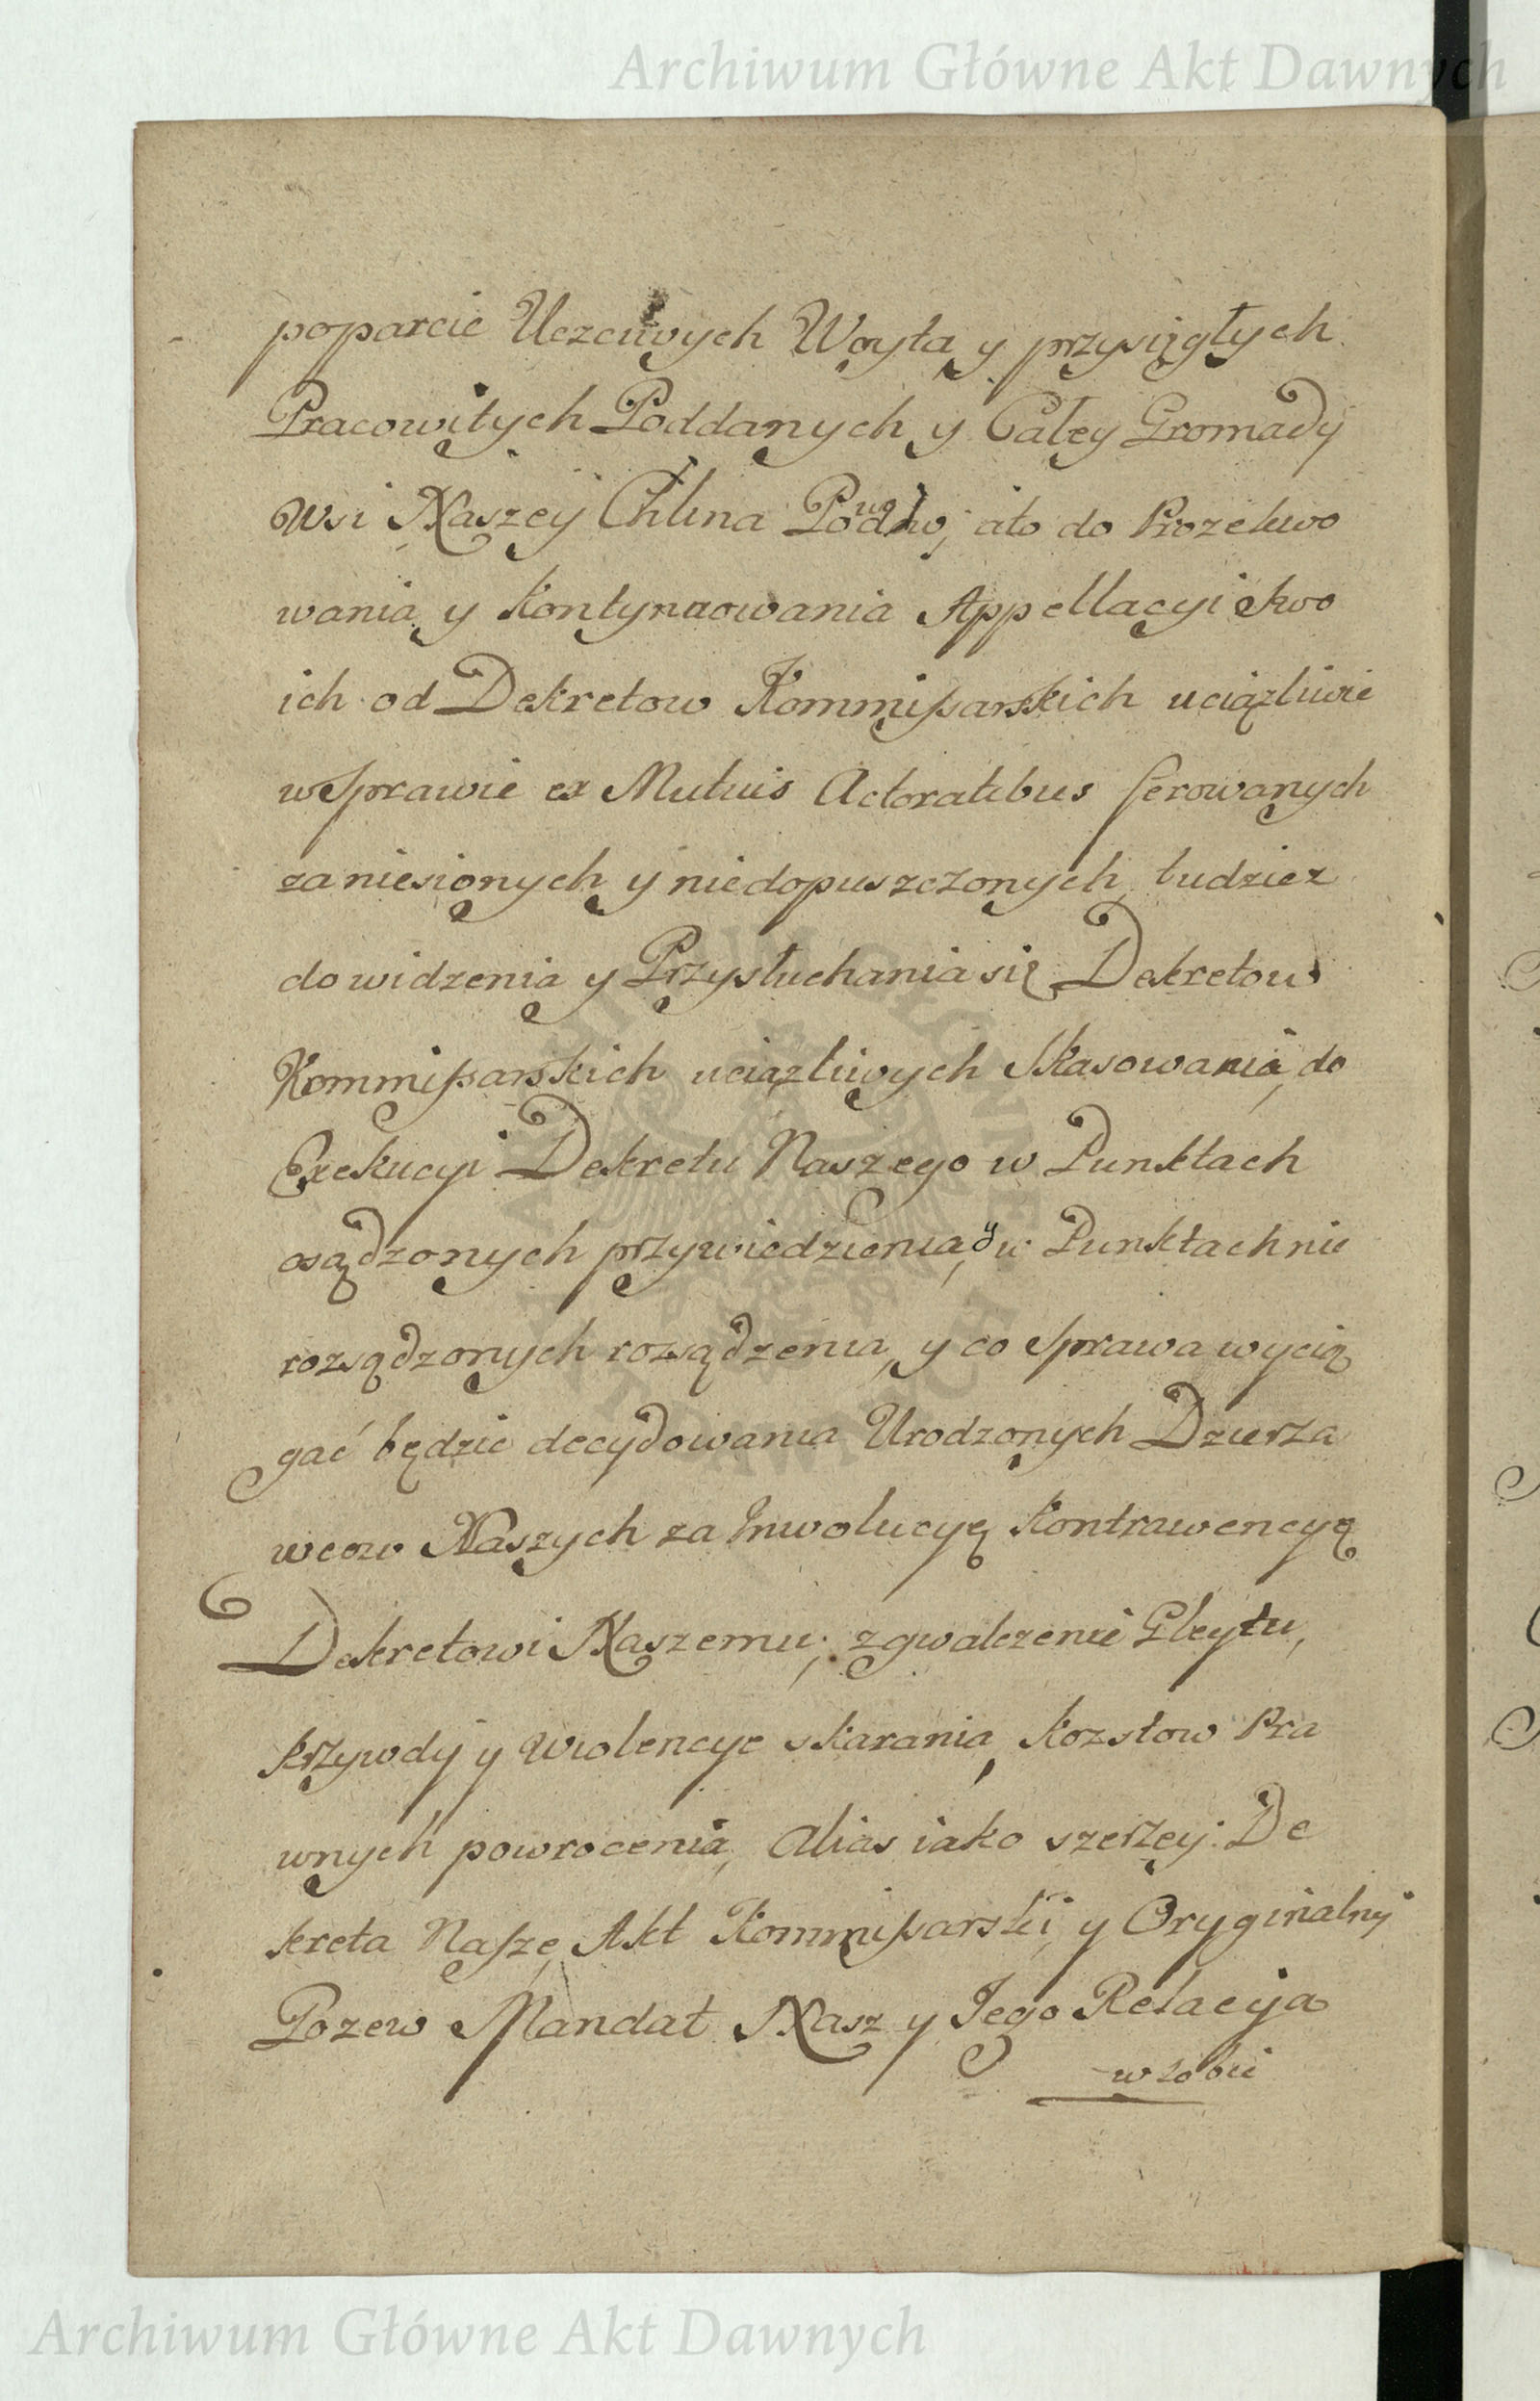 Archiwum Główne Akt Dawnych
poparcie Uczciwych Woyta y przysięgłych
Pracowitych Poddanych y Całey Gromady
Wsi Naszey Chlina ato do Prozekwo
wania y kontynuowania Appellacyi swo
ich od Dekretow Kommißarskich uciązliwie
w Sprawie ex Mutuis Actoratibus ferowanych
zaniesionych y niedopuszczonych, tudziez
do widzenia y Przysłuchania się Dekretow
Kommißarskich uciązliwych skasowania, do
Exekucyi Dekretu Naszego w Punktach
osądzonych przywiedzienia, y w Punktach nie
rozsądzonych rozsądzenia, y co sprawa wycią
gać będzie decydowania Urodzonych Dzierza
wcow Naszych za Inwolucyę kontrawencyę
Dekretowi Naszemu, zgwalczenie Gleytu,
krzywdy y wiolencye skarania, kosztow Pra
wnych powrocenia, Alias iako szerzey De
kreta Nasze, Akt Kommißarski, y Oryginalny
Pozew Mandat Nasz y Jego Relacya
w sobie
Archiwum Główne Akt Dawnych